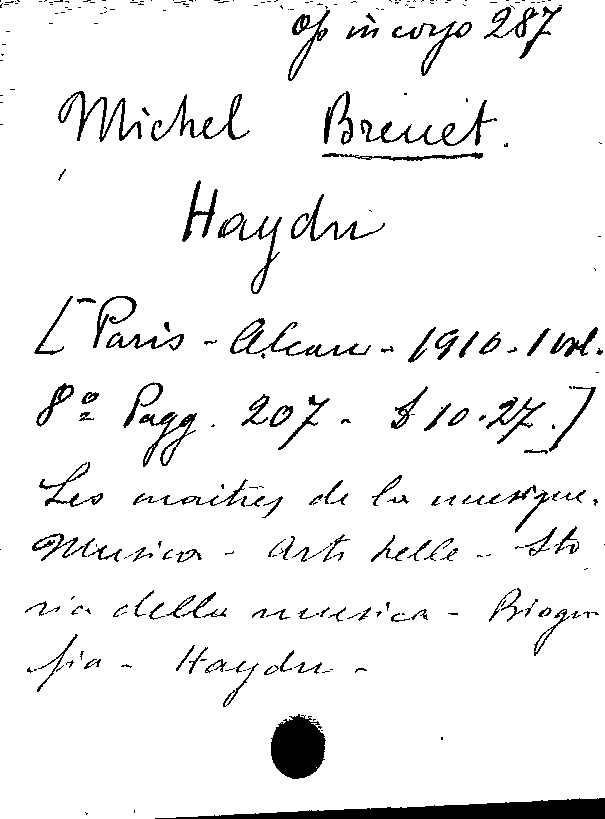 op in corso 287
Michel Brenet.
Haydn
[Paris - Alcan - 1910 - 1 vol.
8º Pagg. 207 - $ 10.27.]
Les maitres de la musique.
Musica - Arti belle - Sto
ria della musica - Biogra
fia - Haydn -